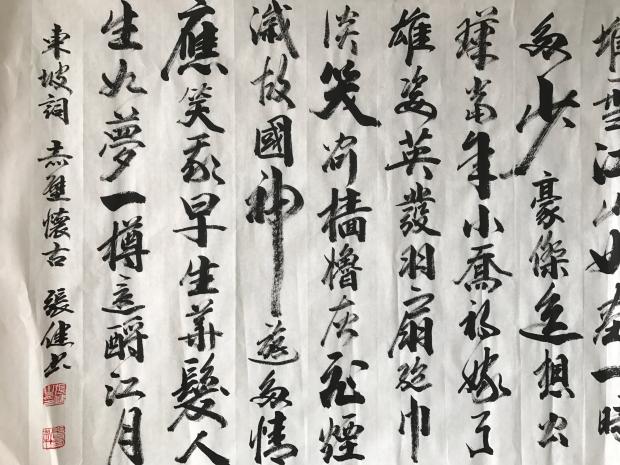 堆雪江山如畫一時
多少豪傑遥想公
瑾當年小喬初嫁了
雄姿英發羽扇綸巾
談笑间檣櫓灰飛煙
滅故國神遊多情
應笑我早生華髮人
生如夢一樽還酹江月
東坡詞 赤壁懷古 張健书